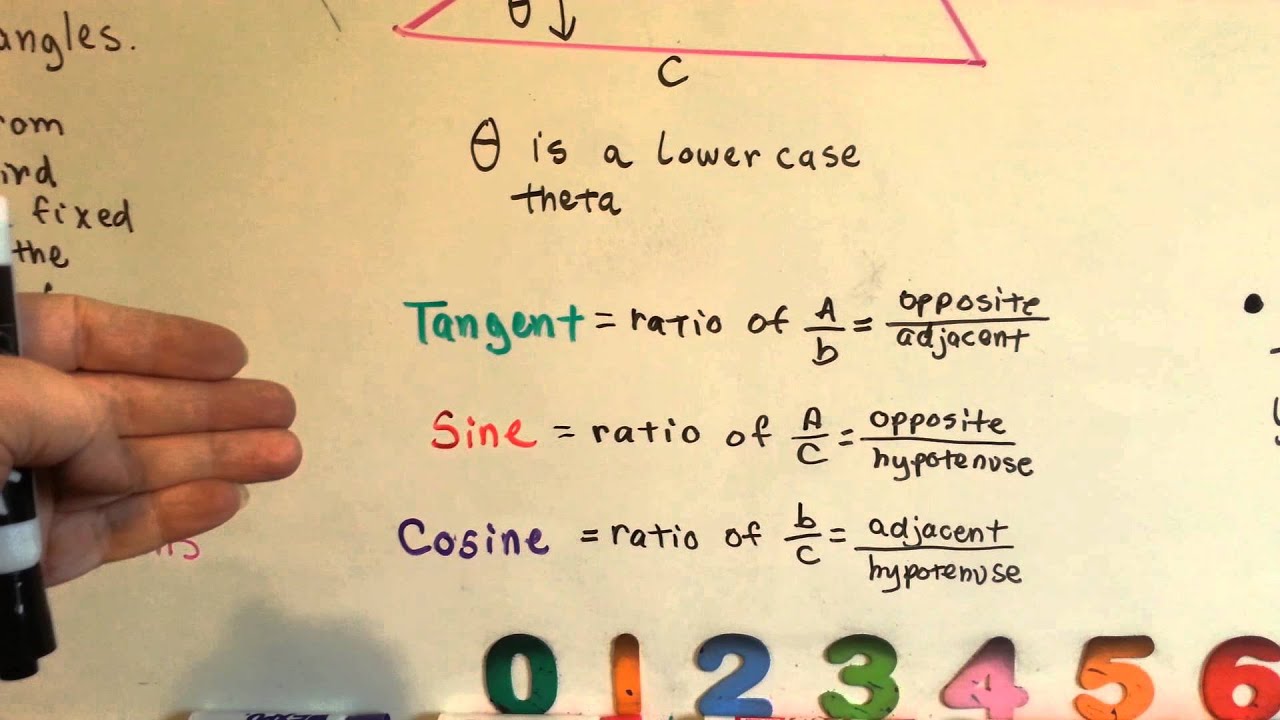 angles.
rom
ind
fixed
the
θ
C
θ is a lower case
theta
Tangent = ratio of A/b = opposite/adjacent
Sine = ratio of A/C = opposite/hypotenuse
Cosine = ratio of b/C = adjacent/hypotenuse
0 1 2 3 4 5 6